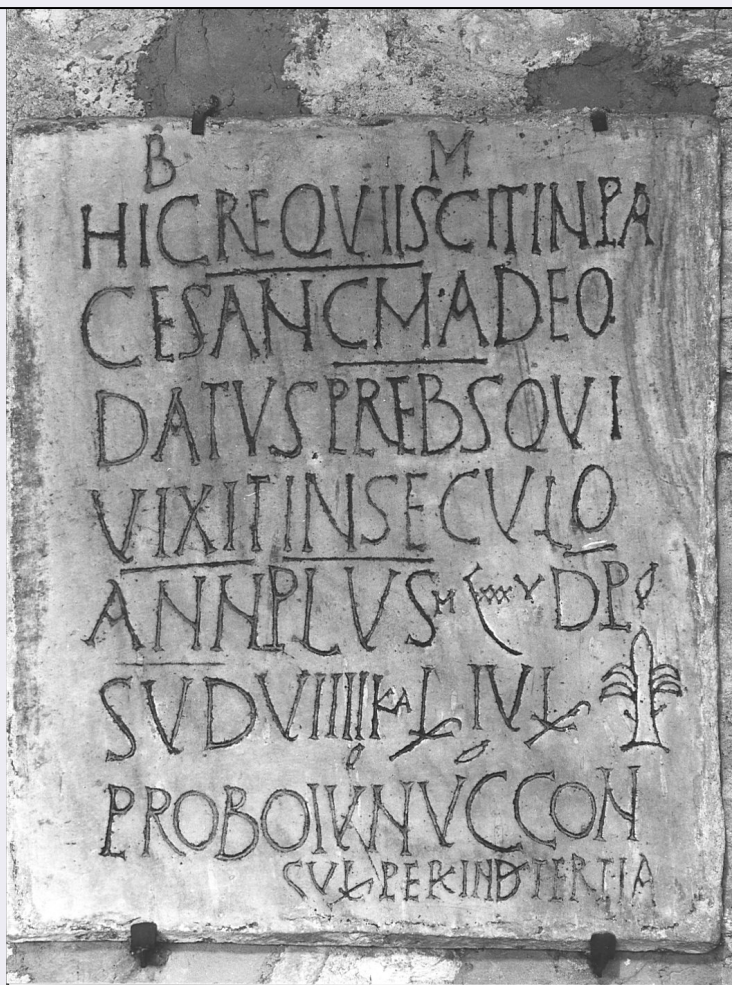 B M
HICREQVIISCITINPA
CESANCM·ADEO
DATVSPREBSQVI
VIXITINSECVLO
ANNPLVSM DPO
SVDVIIIIIKALIVL
PROBOIVNVCCON
CVLPERINDTERTIA